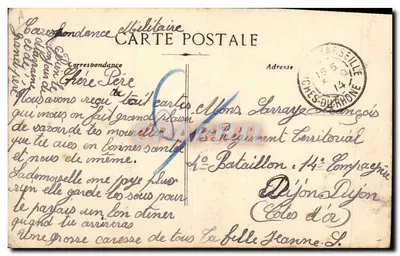 Correspondance Militaire
CARTE POSTALE
Correspondance
Adresse
MARSEILLE
BCHES-DU-RHONE
Chère Père
Nous avons reçu ta carte
qui nous en fait grand plaisir
de savoir de tes nouvelles
que tu aies en bonnes santé
et nous de même.
Mademoiselle me paye plus
rien elle garde les sous pour
te payais un bon diner
quand tu arriveras
Une grosse caresse de tous ta fille Jeanne L.
Mons Larraye François
Regiment Territorial
4e Bataillon 14e Compagnie
Dijon Dijon
(Côte d'or)